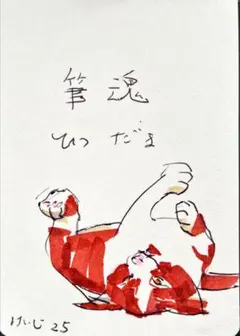 筆魂
ひつだま
けいじ 25